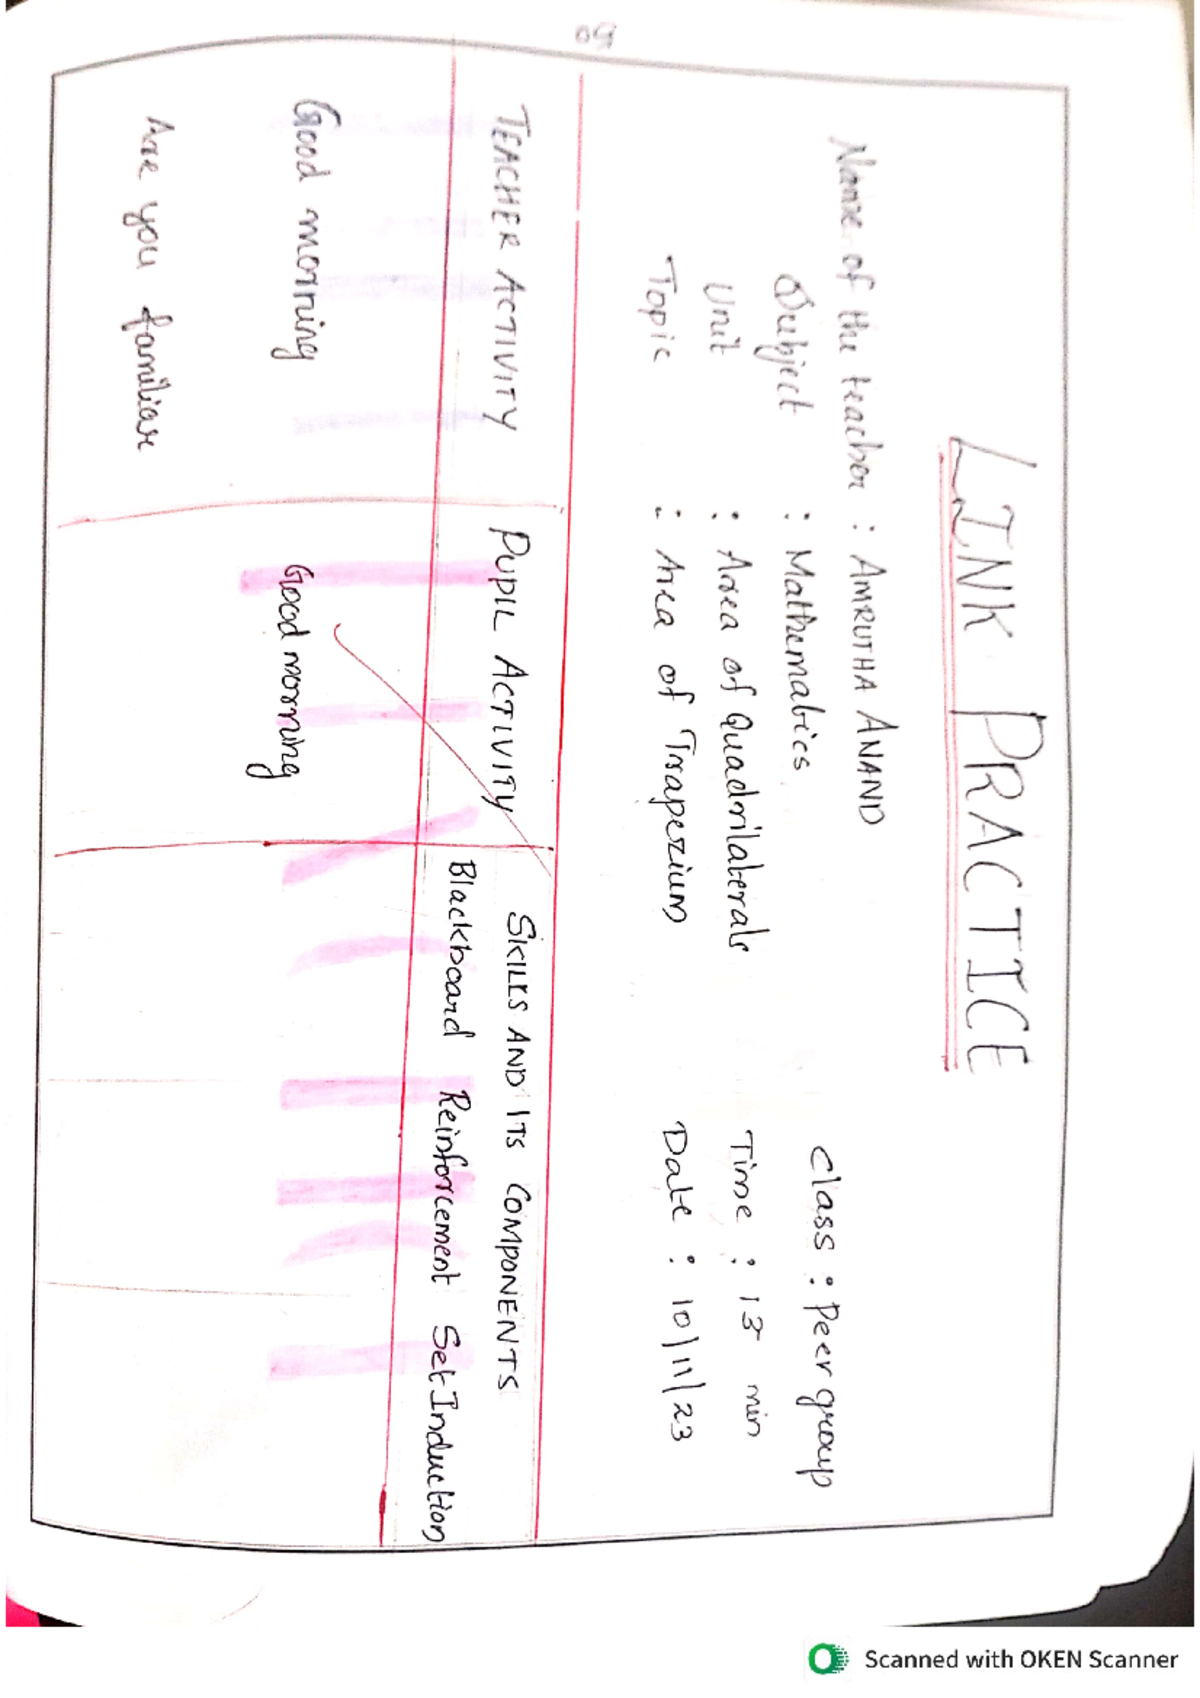 LINK PRACTICE
Name of the teacher : AMRUTHA ANAND
Subject : Mathematics
Class : Peer group
Unit : Area of Quadrilaterals
Time : 13 min
Topic : Area of Trapezium
Date : 10/11/23
TEACHER ACTIVITY PUPIL ACTIVITY SKILLS AND ITS COMPONENTS
Blackboard Reinforcement Set Induction
Good morning Good morning
Are you familiar
Scanned with OKEN Scanner